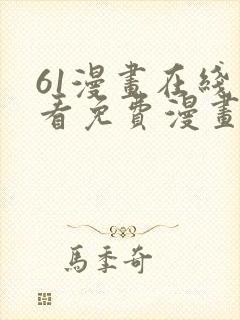 61漫畫在綫
看免費漫畫
馬季奇